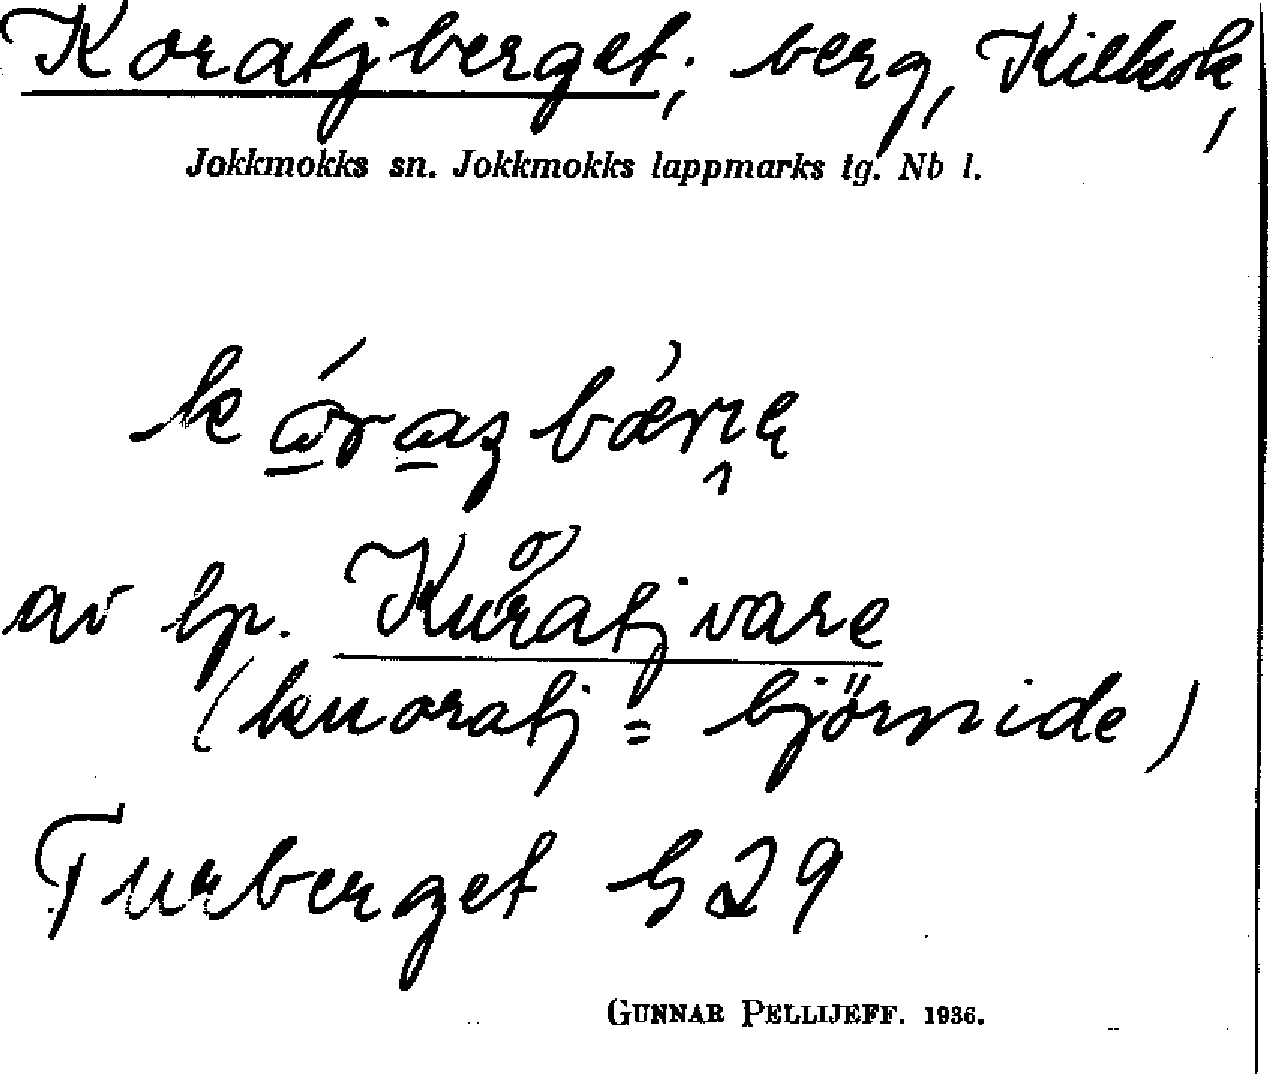 Koratjberget; berg, Kilkok,
Jokkmokks sn. Jokkmokks lappmarks tg. Nb l.
av lp. Kuoratjvare
(kuoratj = björnide)
Turberget G 29
GUNNAR PELLIJEFF. 1936.